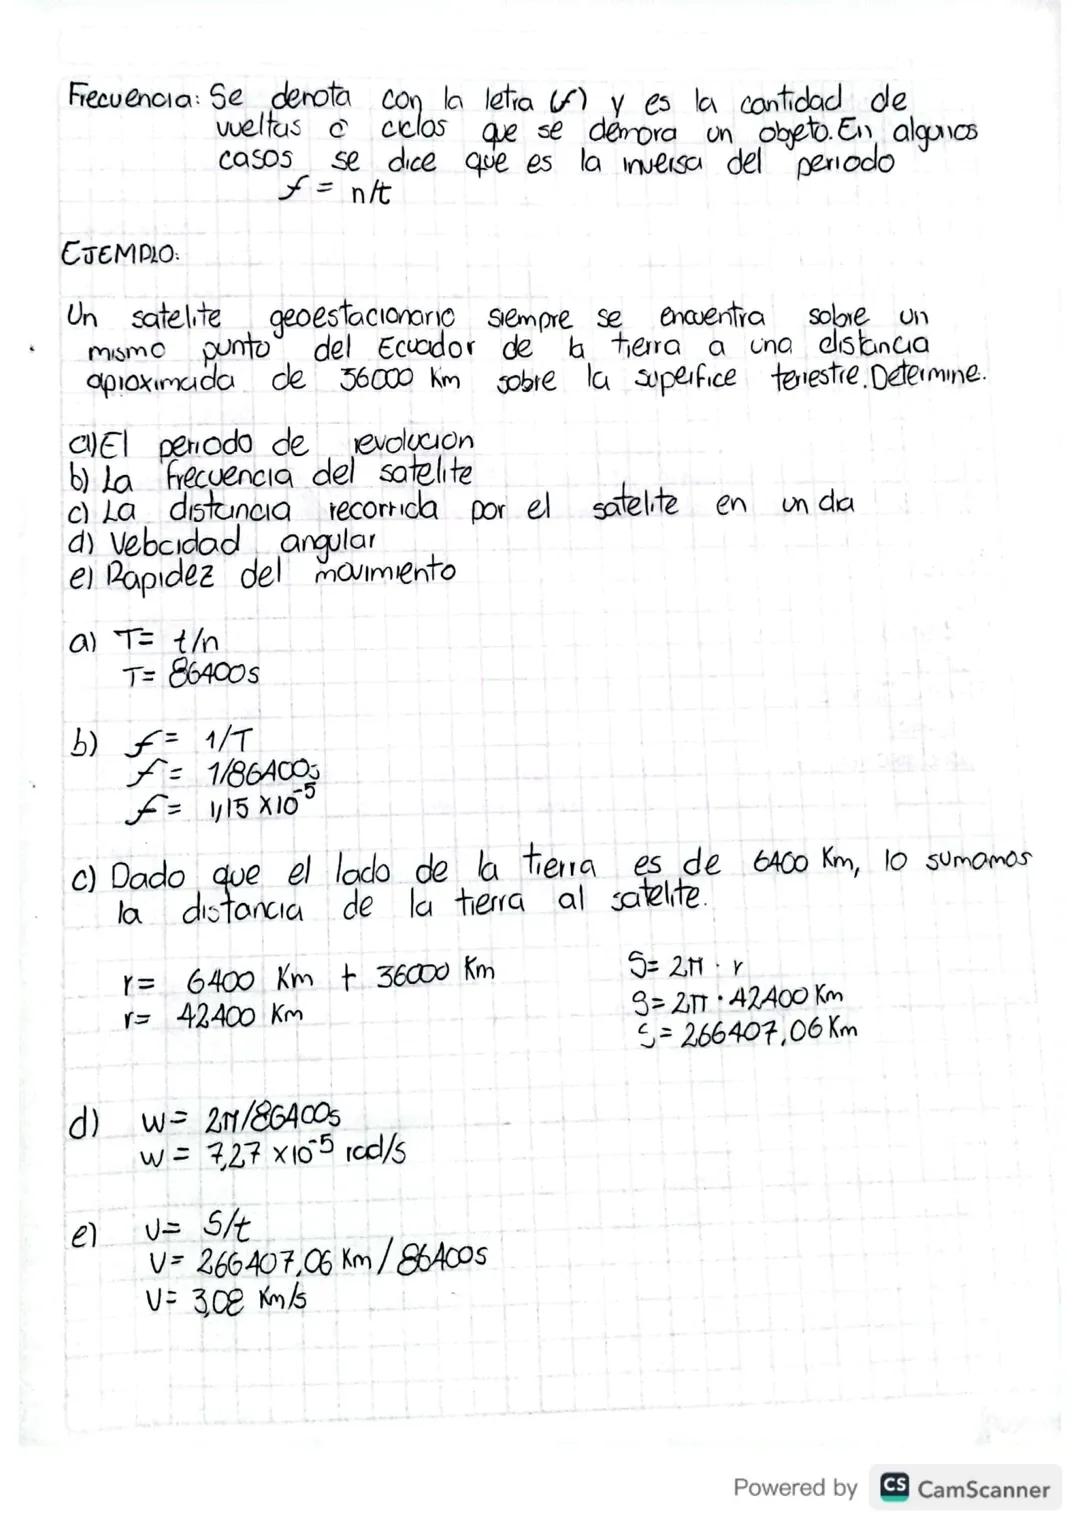 Frecuencia: Se denota con la letra (f) y es la cantidad de
vueltas o ciclos que se demora un objeto. En algunos
casos se dice que es la inversa del periodo
f = n/t
EJEMPLO:
Un satelite geoestacionario siempre se encuentra sobre un
mismo punto del Ecuador de la tierra a una distancia
aproximada de 36000 Km sobre la superfice terrestre. Determine.
a) El periodo de revolucion
b) La frecuencia del satelite
c) La distancia recorrida por el satelite en un dia
d) Velocidad angular
e) Rapidez del movimiento
a) T= t/n
T= 86400s
b) f= 1/T
f= 1/86400s
f= 1,15 x10⁻⁵
c) Dado que el lado de la tierra es de 6400 Km, lo sumamos
la distancia de la tierra al satelite.
r= 6400 Km + 36000 Km
r= 42400 Km
S= 2π · r
S= 2π · 42400 Km
S= 266407,06 Km
d) w= 2π/86400s
w= 7,27 x10⁻⁵ rad/s
e) V= S/t
V= 266407,06 Km / 86400s
V= 3,08 Km/s
Powered by CS CamScanner